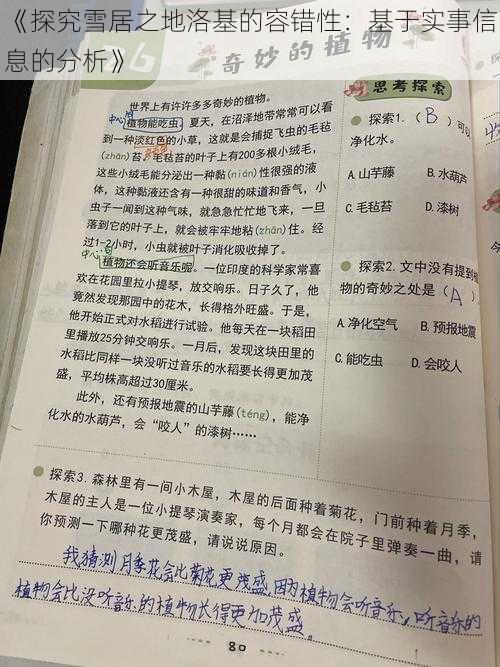 《探究雪居之地洛基的容错性：基于实事信
息的分析》
6
奇妙的植物
世界上有许许多多奇妙的植物。
中心句 植物能吃虫。夏天，在沼泽地带常常可以看
到一种淡红色的小草，这就是会捕捉飞虫的毛毡
(zhān)苔。毛毡苔的叶子上有200多根小绒毛，
这些小绒毛能分泌出一种黏(nián)性很强的液
体，这种黏液还含有一种很甜的味道和香气，小
虫子一闻到这种气味，就急急忙忙地飞来，一旦
落到它的叶子上，就会被牢牢地粘(zhān)住。经
过1-2小时，小虫就被叶子消化吸收掉了。
中心句
植物还会听音乐呢。一位印度的科学家常喜
欢在花园里拉小提琴，放交响乐。日子久了，他
竟然发现那园中的花木，长得格外旺盛。于是，
他开始正式对水稻进行试验。他每天在一块稻田
里播放25分钟交响乐。一月后，发现这块田里的
水稻比同样一块没听过音乐的水稻要长得更加茂
盛，平均株高超过30厘米。
此外，还有预报地震的山芋藤(téng)，能净
化水的水葫芦，会“咬人”的漆树……
思考探索
探索1.（B）可以
净化水。
A.山芋藤 B.水葫芦
C.毛毡苔 D.漆树
探索2.文中没有提到植
物的奇妙之处是（A）
A.净化空气 B.预报地震
C.能吃虫 D.会咬人
探索3.森林里有一间小木屋，木屋的后面种着菊花，门前种着月季，
木屋的主人是一位小提琴演奏家，每个月都会在院子里弹奏一曲，请
你预测一下哪种花更茂盛，请说说原因。
我猜测月季花会比菊花更茂盛，因为植物会听音乐，听音乐的
植物会比没听音乐的植物长得更加茂盛。
80